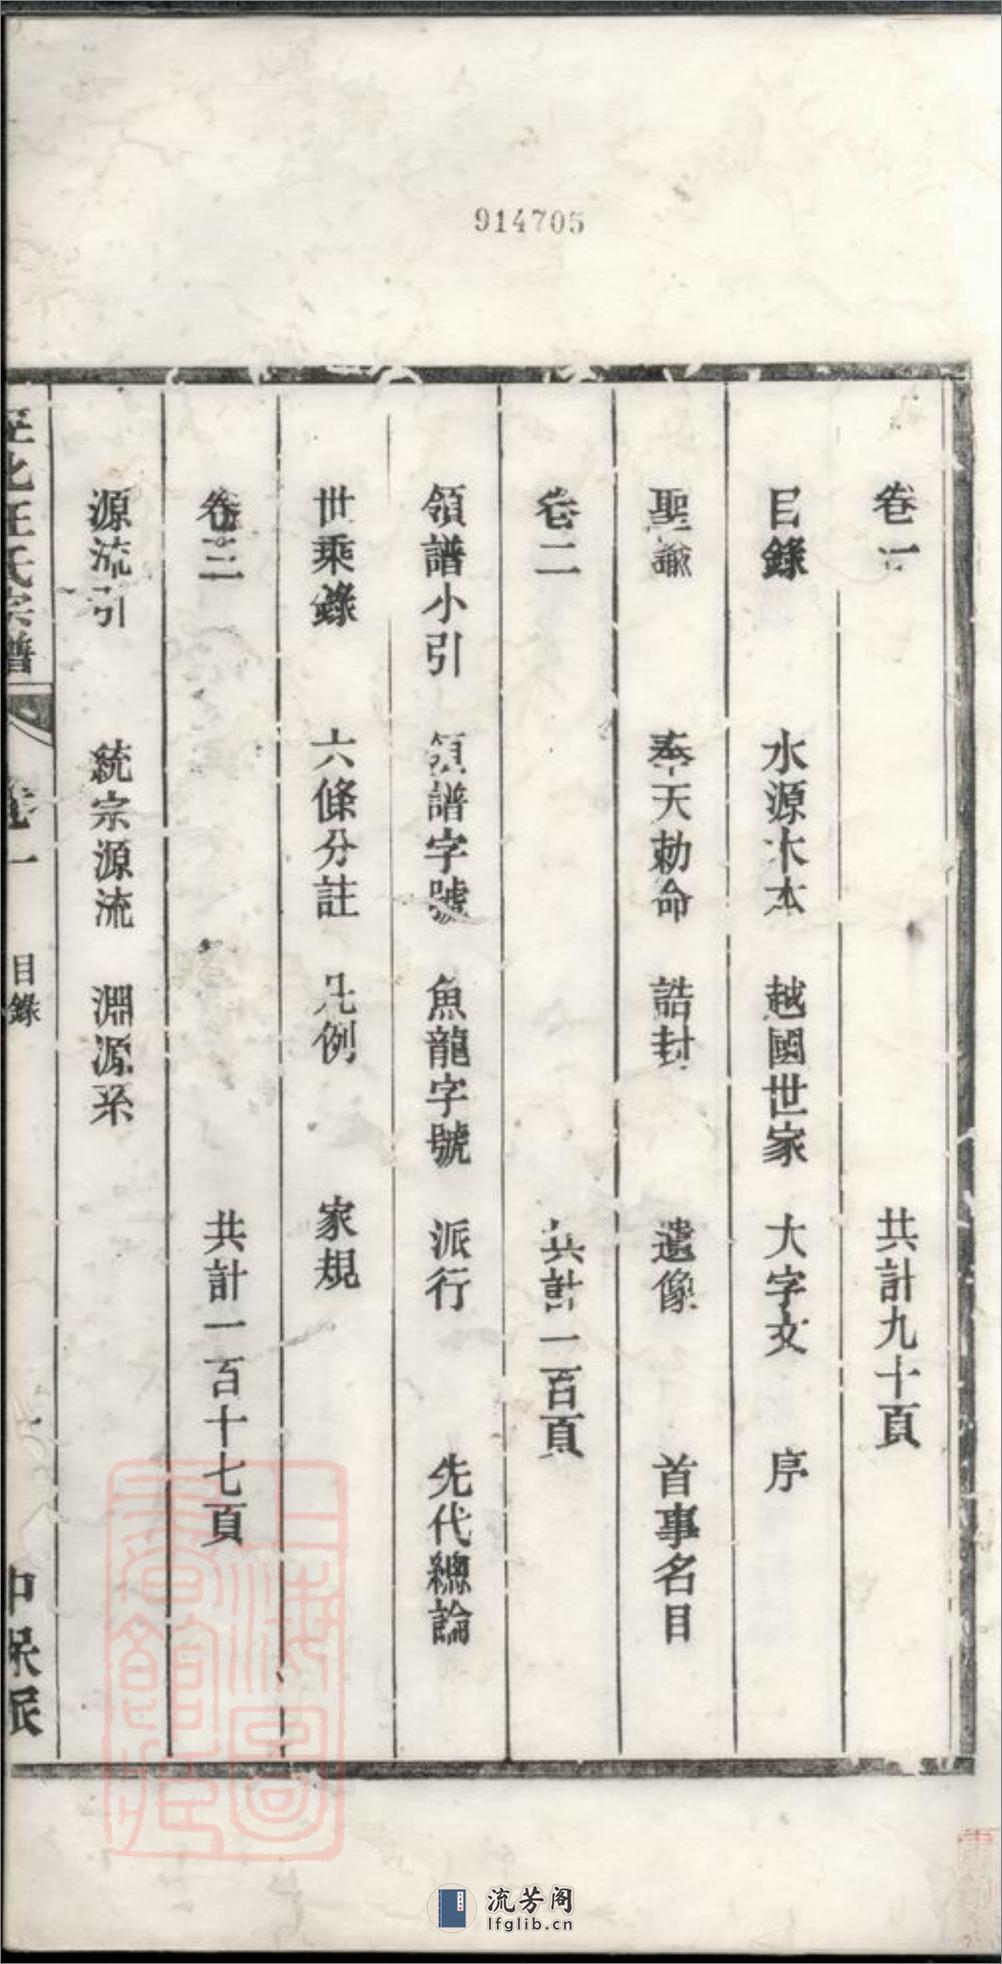 914705
卷一 共計九十頁
目錄 水源木本 越國世家 大字文 序
聖諭 奉天勅命 誥封 遺像 首事名目
卷二 共計一百頁
領譜小引 領譜字號 魚龍字號 派行 先代總論
世乘錄 六條分註 凡例 家規
卷三 共計一百十七頁
源流引 統宗源流 淵源系
汪氏宗譜 卷一 目錄
上海圖書館藏
流芳阁
lfglib.cn